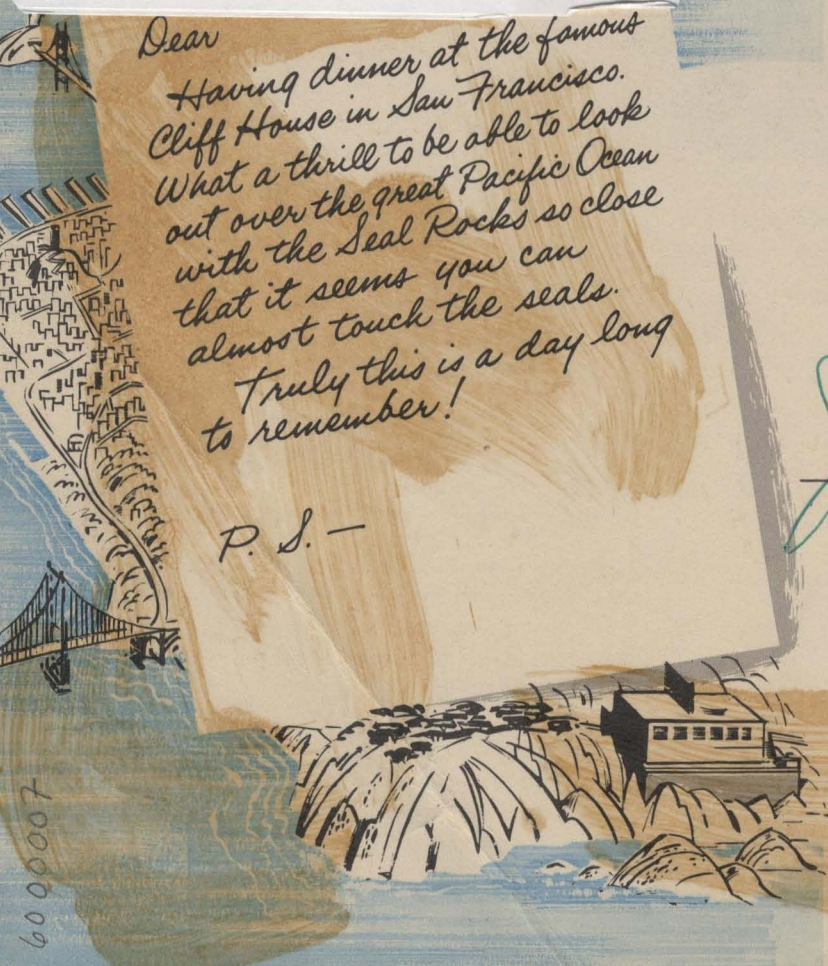 Dear
Having dinner at the famous
Cliff House in San Francisco.
What a thrill to be able to look
out over the great Pacific Ocean
with the Seal Rocks so close
that it seems you can
almost touch the seals.
Truly this is a day long
to remember!
P. S. —
6000007